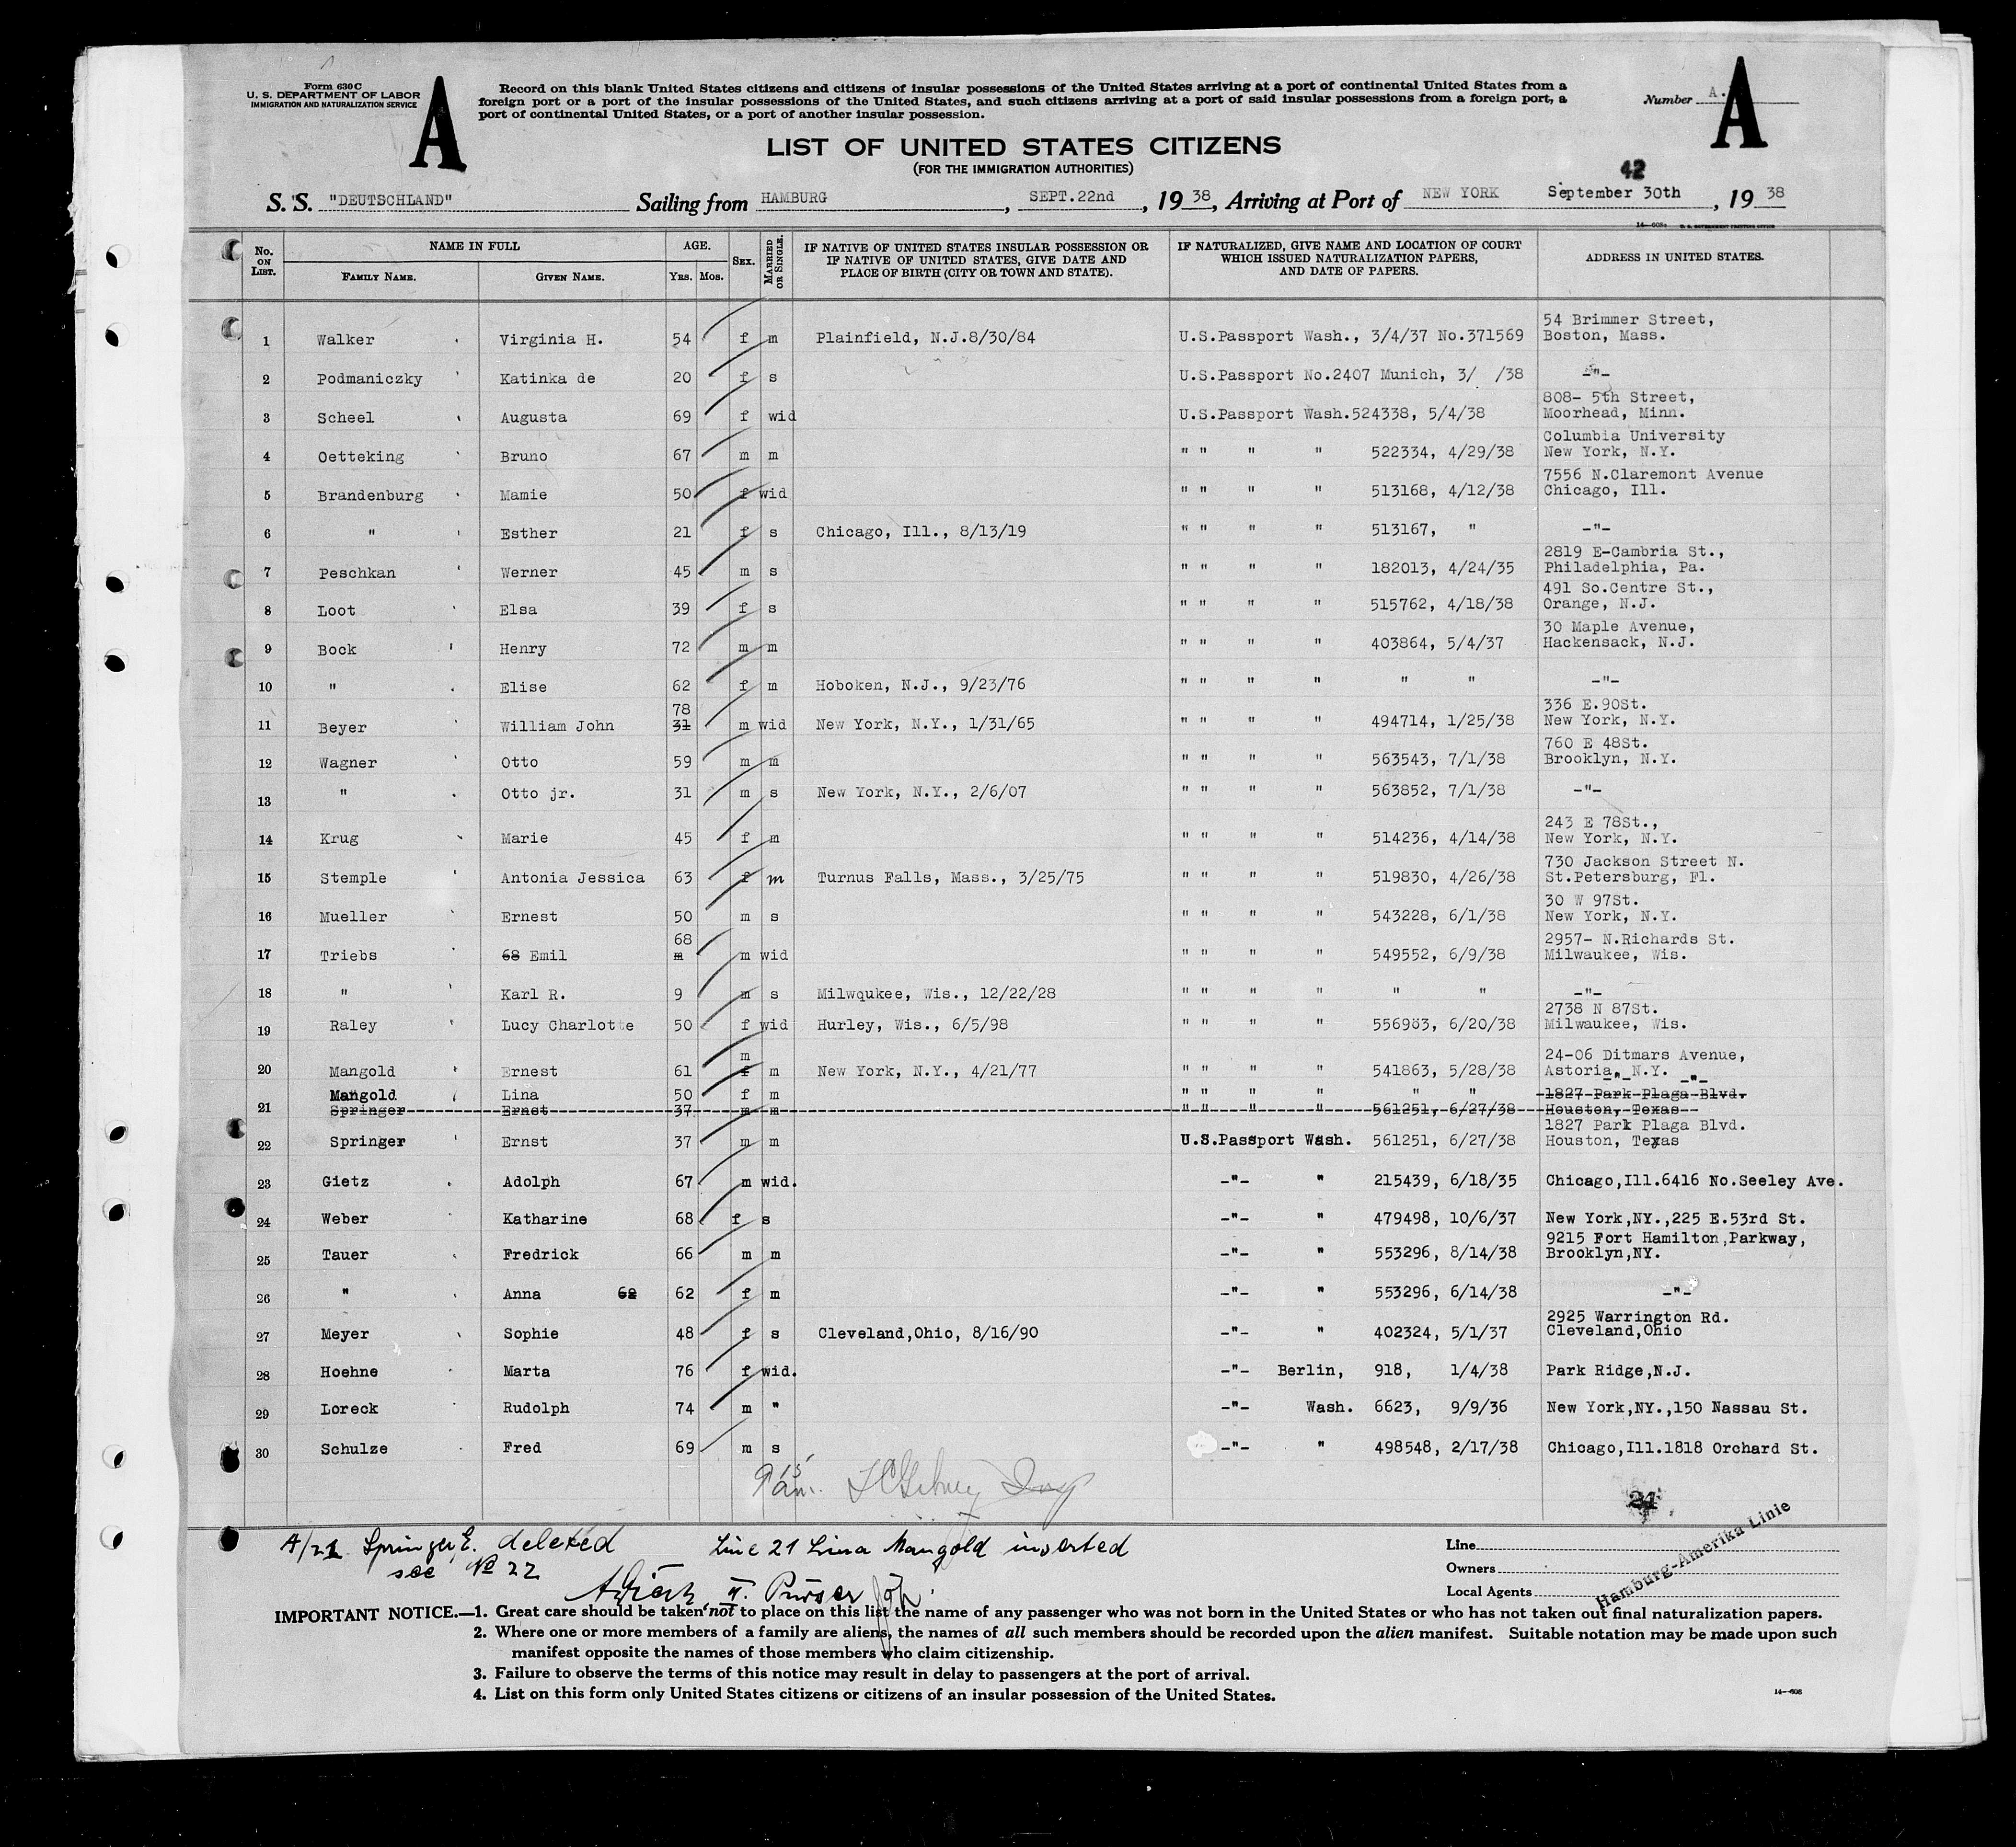 Form 630 C
U. S. DEPARTMENT OF LABOR
IMMIGRATION AND NATURALIZATION SERVICE
A
Record on this blank United States citizens and citizens of insular possessions of the United States arriving at a port of continental United States from a
foreign port or a port of the insular possessions of the United States, and such citizens arriving at a port of said insular possessions from a foreign port, a
port of continental United States, or a port of another insular possession.
Number A.
A
LIST OF UNITED STATES CITIZENS
(FOR THE IMMIGRATION AUTHORITIES)
42
S. S. "DEUTSCHLAND" Sailing from HAMBURG, SEPT.22nd, 1938, Arriving at Port of NEW YORK September 30th, 1938
No. ON LIST. NAME IN FULL FAMILY NAME. GIVEN NAME. AGE. YRS. MOS. SEX. MARRIED OR SINGLE. IF NATIVE OF UNITED STATES INSULAR POSSESSION OR IF NATIVE OF UNITED STATES, GIVE DATE AND PLACE OF BIRTH (CITY OR TOWN AND STATE). IF NATURALIZED, GIVE NAME AND LOCATION OF COURT WHICH ISSUED NATURALIZATION PAPERS, AND DATE OF PAPERS. ADDRESS IN UNITED STATES.
54 Brimmer Street,
1 Walker Virginia H. 54 f m Plainfield, N.J.8/30/84 U.S.Passport Wash., 3/4/37 No.371569 Boston, Mass.
2 Podmaniczky Katinka de 20 f s U.S.Passport No.2407 Munich, 3/ /38 -"-
808- 5th Street,
3 Scheel Augusta 69 f wid U.S.Passport Wash.524338, 5/4/38 Moorhead, Minn.
Columbia University
4 Oetteking Bruno 67 m m " " " " 522334, 4/29/38 New York, N.Y.
7556 N.Claremont Avenue
5 Brandenburg Mamie 50 f wid " " " " 513168, 4/12/38 Chicago, Ill.
6 " Esther 21 f s Chicago, Ill., 8/13/19 " " " " 513167, " -"-
2819 E-Cambria St.,
7 Peschkan Werner 45 m s " " " " 182013, 4/24/35 Philadelphia, Pa.
491 So.Centre St.,
8 Loot Elsa 39 f s " " " " 515762, 4/18/38 Orange, N.J.
30 Maple Avenue,
9 Bock Henry 72 m m " " " " 403864, 5/4/37 Hackensack, N.J.
10 " Elise 62 f m Hoboken, N.J., 9/23/76 " " " " " " -"-
78 336 E.90St.
11 Beyer William John 31 m wid New York, N.Y., 1/31/65 " " " " 494714, 1/25/38 New York, N.Y.
760 E 48St.
12 Wagner Otto 59 m m " " " " 563543, 7/1/38 Brooklyn, N.Y.
13 " Otto jr. 31 m s New York, N.Y., 2/6/07 " " " " 563852, 7/1/38 -"-
243 E 78St.,
14 Krug Marie 45 f m " " " " 514236, 4/14/38 New York, N.Y.
730 Jackson Street N.
15 Stemple Antonia Jessica 63 f m Turnus Falls, Mass., 3/25/75 " " " " 519830, 4/26/38 St.Petersburg, Fl.
30 W 97St.
16 Mueller Ernest 50 m s " " " " 543228, 6/1/38 New York, N.Y.
68 2957- N.Richards St.
17 Triebs 68 Emil m m wid " " " " 549552, 6/9/38 Milwaukee, Wis.
18 " Karl R. 9 m s Milwqukee, Wis., 12/22/28 " " " " " " -"-
2738 N 87St.
19 Raley Lucy Charlotte 50 f wid Hurley, Wis., 6/5/98 " " " " 556983, 6/20/38 Milwaukee, Wis.
m 24-06 Ditmars Avenue,
20 Mangold Ernest 61 f m New York, N.Y., 4/21/77 " " " " 541863, 5/28/38 Astoria, N.Y.
Mangold Lina 50 f m " " " " " " -"- -"-
1827 Park Plaga Blvd.
21 Springer Ernst 37 m m " " " " 561251, 6/27/38 Houston, Texas
1827 Park Plaga Blvd.
22 Springer Ernst 37 m m U.S.Passport Wash. 561251, 6/27/38 Houston, Texas
23 Gietz Adolph 67 m wid. -"- " 215439, 6/18/35 Chicago,Ill.6416 No.Seeley Ave.
24 Weber Katharine 68 f s -"- " 479498, 10/6/37 New York,NY.,225 E.53rd St.
9215 Fort Hamilton,Parkway,
25 Tauer Fredrick 66 m m -"- " 553296, 8/14/38 Brooklyn,NY.
26 " Anna 62 62 f m -"- " 553296, 6/14/38 -"-
2925 Warrington Rd.
27 Meyer Sophie 48 f s Cleveland,Ohio, 8/16/90 -"- " 402324, 5/1/37 Cleveland,Ohio
28 Hoehne Marta 76 f wid. -"- Berlin, 918, 1/4/38 Park Ridge,N.J.
29 Loreck Rudolph 74 m " -"- Wash. 6623, 9/9/36 New York,NY.,150 Nassau St.
30 Schulze Fred 69 m s -"- " 498548, 2/17/38 Chicago,Ill.1818 Orchard St.
9 15 am.
A/21 Springer, E. deleted
see No 22
Line 21 Lina Mangold inserted
II. Purser
Line
Owners
Local Agents
Hamburg-Amerika Linie
IMPORTANT NOTICE.—1. Great care should be taken not to place on this list the name of any passenger who was not born in the United States or who has not taken out final naturalization papers.
2. Where one or more members of a family are aliens, the names of all such members should be recorded upon the alien manifest. Suitable notation may be made upon such
manifest opposite the names of those members who claim citizenship.
3. Failure to observe the terms of this notice may result in delay to passengers at the port of arrival.
4. List on this form only United States citizens or citizens of an insular possession of the United States.